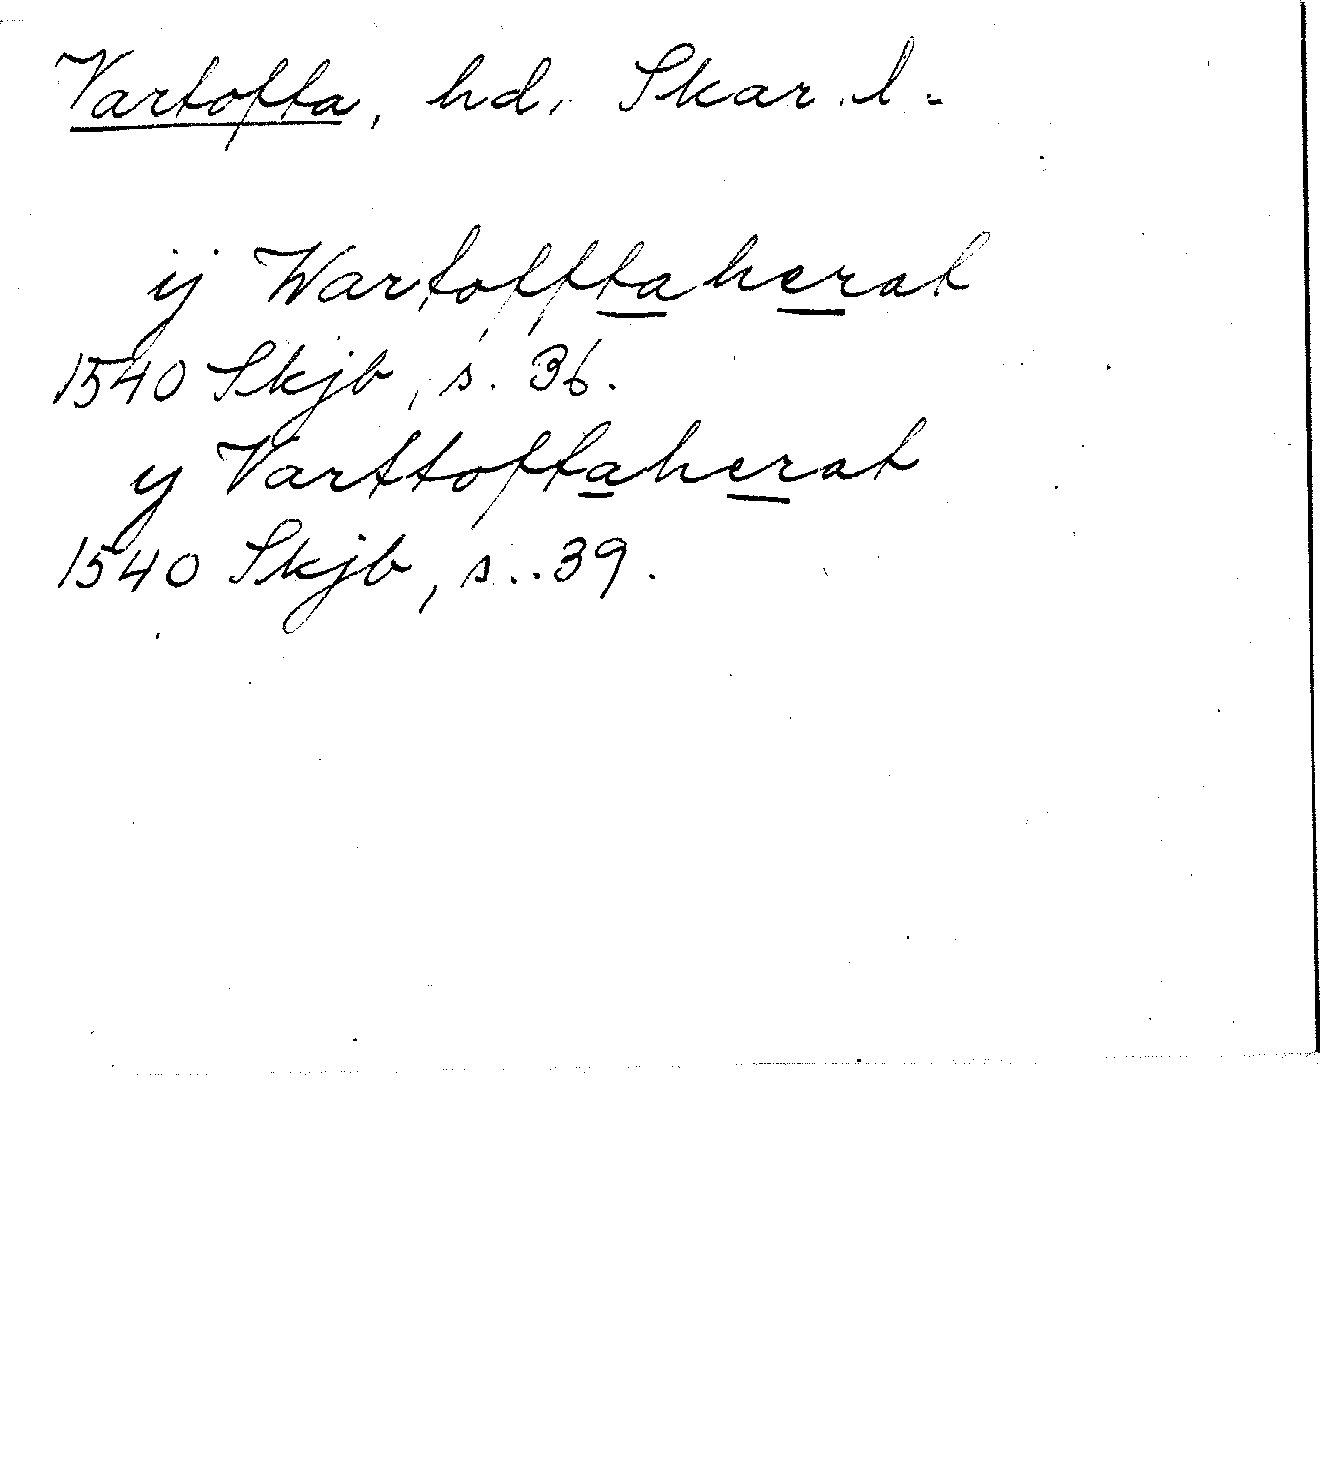 Vartofta, hd. Skar. l.
ij Wartofftaherat
1540 Skjb, s. 36.
y Varttoftaherat
1540 Skjb, s. 39.